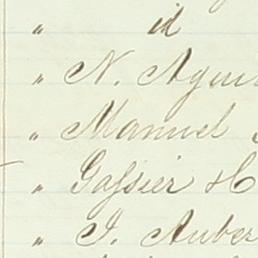 " id
" N. Agui
" Manuel
" Gassier & C
" J. Auber